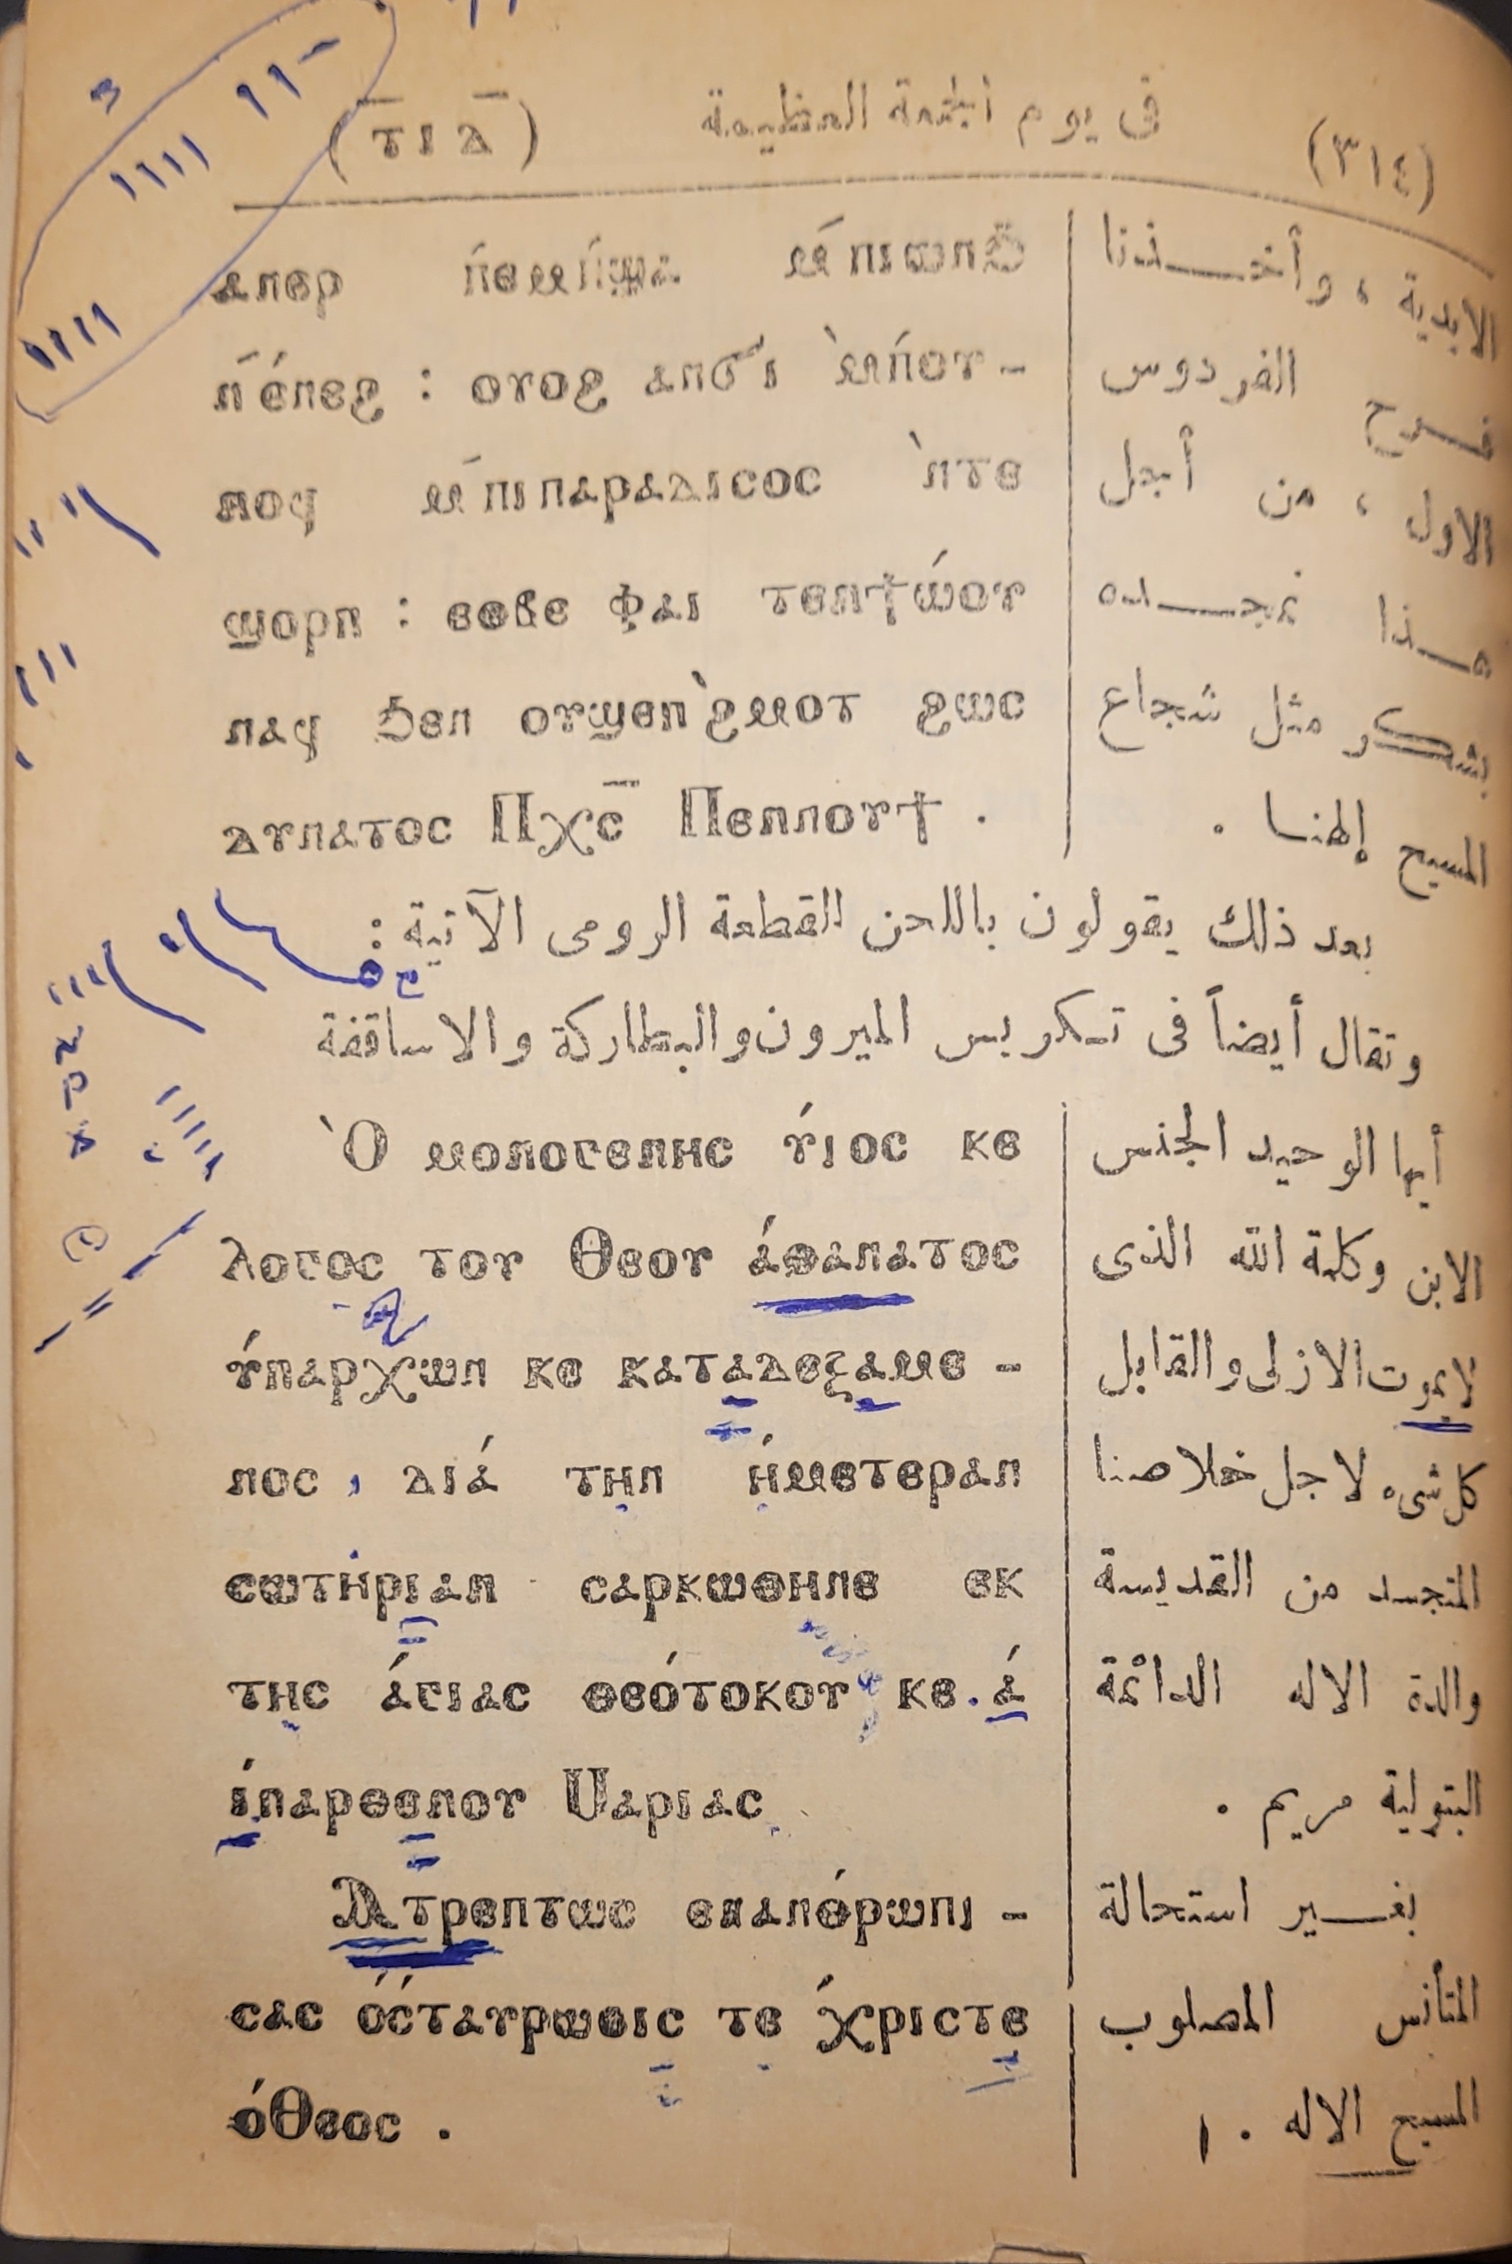 (ⲧ̅ⲓⲇ̅) فى يوم الجمعة العظيمة (٣١٤)
ⲁⲛⲉⲣ ⲛ̀ⲉⲙⲡ̀ϣⲁ ⲙ̀ⲡⲓⲱⲛϧ
ⲛ̀ⲉ́ⲛⲉϩ : ⲟⲩⲟϩ ⲁⲛϭⲓ ⲙ̀ⲡ̀ⲟⲩ-
ⲛⲟϥ ⲙ̀ⲡⲓⲡⲁⲣⲁⲇⲓⲥⲟⲥ ̀ⲛⲧⲉ
ϣⲟⲣⲡ : ⲉⲑⲃⲉ ⲫⲁⲓ ⲧⲉⲛϯⲱ́ⲟⲩ
ⲛⲁϥ ϧⲉⲛ ⲟⲩϣⲉⲡ̀ϩⲙⲟⲧ ϩⲱⲥ
ⲇⲩⲛⲁⲧⲟⲥ Ⲡⲭⲥ̅ Ⲡⲉⲛⲛⲟⲩϯ .
الابدية ، وأخـــذنا
فـــرح الفردوس
الاول ، من أجل
هـــذا نمجـــده
بشكر مثل شجاع
المسيح إلهنـا .
بعد ذلك يقولون باللحن القطعة الرومى الآتية :
وتقال أيضاً فى تكريس الميرون والبطاركة والاساقفة
̀Ⲟ ⲙⲟⲛⲟⲅⲉⲛⲏⲥ ⲩ́ⲓⲟⲥ ⲕⲉ
ⲗⲟⲅⲟⲥ ⲧⲟⲩ Ⲑⲉⲟⲩ ⲁ́ⲑⲁⲛⲁⲧⲟⲥ
ⲩ́ⲡⲁⲣⲭⲱⲛ ⲕⲉ ⲕⲁⲧⲁⲇⲉⲝⲁⲙⲉ -
ⲛⲟⲥ , ⲇⲓⲁ́ ⲧⲏⲛ ⲏ́ⲙⲉⲧⲉⲣⲁⲛ
ⲥⲱⲧⲏⲣⲓⲁⲛ ⲥⲁⲣⲕⲱⲑⲏⲛⲉ ⲉⲕ
ⲧⲏⲥ ⲁ́ⲅⲓⲁⲥ ⲑⲉⲟ́ⲧⲟⲕⲟⲩ ⲕⲉ ⲁ́
ⲓ́ⲡⲁⲣⲑⲉⲛⲟⲩ Ⲙⲁⲣⲓⲁⲥ
Ⲁⲧⲣⲉⲡⲧⲱⲥ ⲉⲛⲁⲛⲑ́ⲣⲱⲡⲓ -
ⲥⲁⲥ ⲟ́ⲥ́ⲧⲁⲩⲣⲱⲑⲓⲥ ⲧⲉ ⲭ́ⲣⲓⲥⲧⲉ
ⲟ́Ⲑⲉⲟⲥ .
أيها الوحيد الجنس
الابن وكلمة الله الذى
لايموت الازلى والقابل
كل شىء لاجل خلاصنا
المتجسد من القديسة
والدة الاله الدائمة
البتولية مريم .
بغـــير استحالة
المتأنس المصلوب
المسيح الاله .